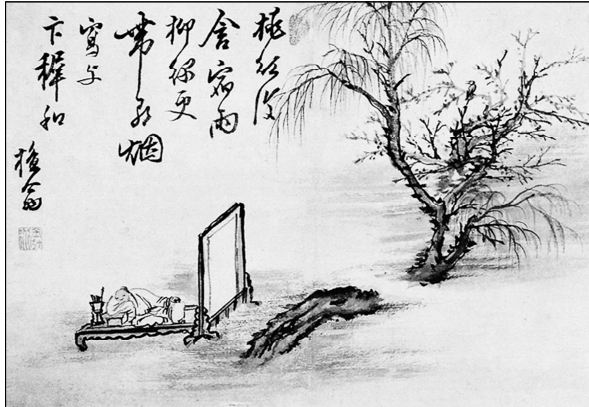 桃紅復
含宿雨
柳綠更
帶朝烟
寫与
卞穉和
檀翁